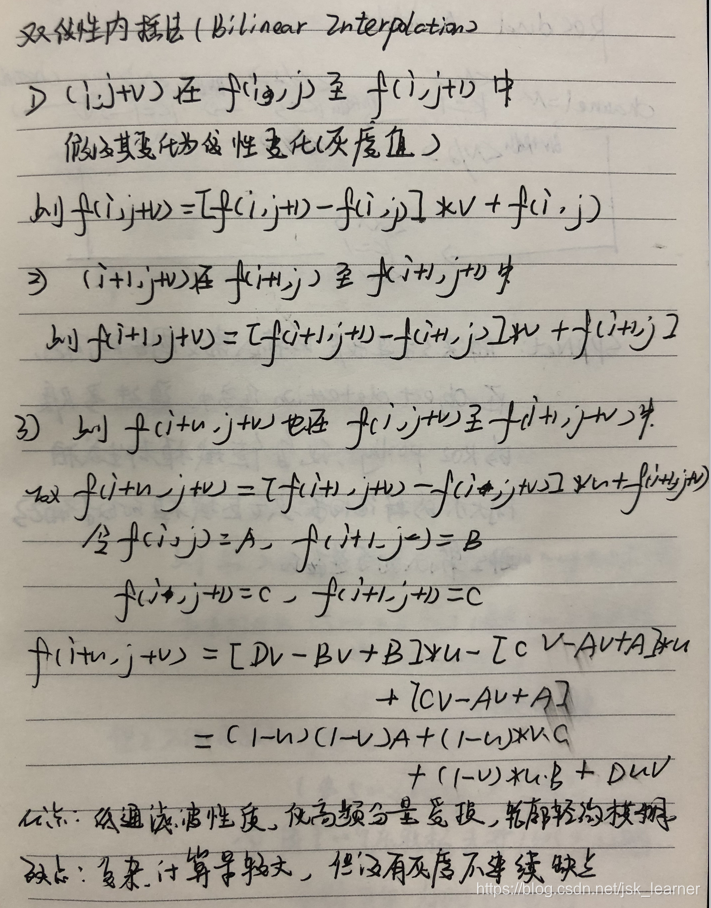 双线性内插法(Bilinear Interpolation)
1) (i,j+v)在 f(i,j) 至 f(i,j+1) 中
假设其变化为线性变化(灰度值)
则f(i,j+v)=[f(i,j+1)-f(i,j)]*v+f(i,j)
2) (i+1,j+v)在 f(i+1,j) 至 f(i+1,j+1)中
则f(i+1,j+v)=[f(i+1,j+1)-f(i+1,j)]*v+f(i+1,j]
3) 则 f(i+u,j+v)也在 f(i,j+v)至f(i+1,j+v)中
故 f(i+u,j+v)=[f(i+1,j+v)-f(i,j+v)]*u+f(i+1,j+v)
令f(i,j)=A, f(i+1,j)=B
f(i,j+1)=C, f(i+1,j+1)=C
f(i+u,j+v)=[DV-BV+B]*u-[CV-AV+A]*u
+[CV-AV+A]
=(1-u)(1-v)A+(1-u)*v.C
+(1-v)*u.B+DUV
优点:低通滤波性质,使高频分量受损,轮廓轻微模糊
缺点:复杂,计算量较大,但没有灰度不连续缺点
https://blog.csdn.net/jsk_learner